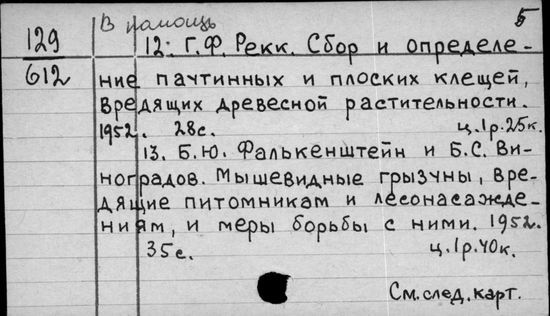 5
В помощь
129
612
12: Г.Ф. Рекк. Сбор и определе-
ние паутинных и плоских клещей,
вредящих древесной растительности.
1952. 28с. ц.1р.25к.
13. Б.Ю. Фалькенштейн и Б.С. Ви-
ноградов. Мышевидные грызуны, вре-
дящие питомникам и лесонасажде-
ниям, и меры борьбы с ними. 1952.
35с. ц.1р.40к.
См.след.карт.